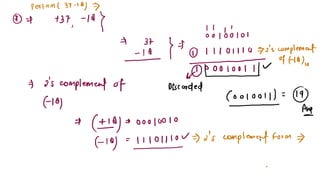 Perform (37-18)
② ⇒ +37, -18 }
⇒ 37
-18 } ⇒
1 1 1
00100101
① 11101110 → 2's complement
of (-18)₁₀
① 0010011 ✓
Discarded
(0010011) = ⑲
Ans
⇒ 2's complement of
(-18)
⇒ (+18) ⇒ 00010010
(-18) = 11101110 ✓ ⇒ 2's complement form ⇒